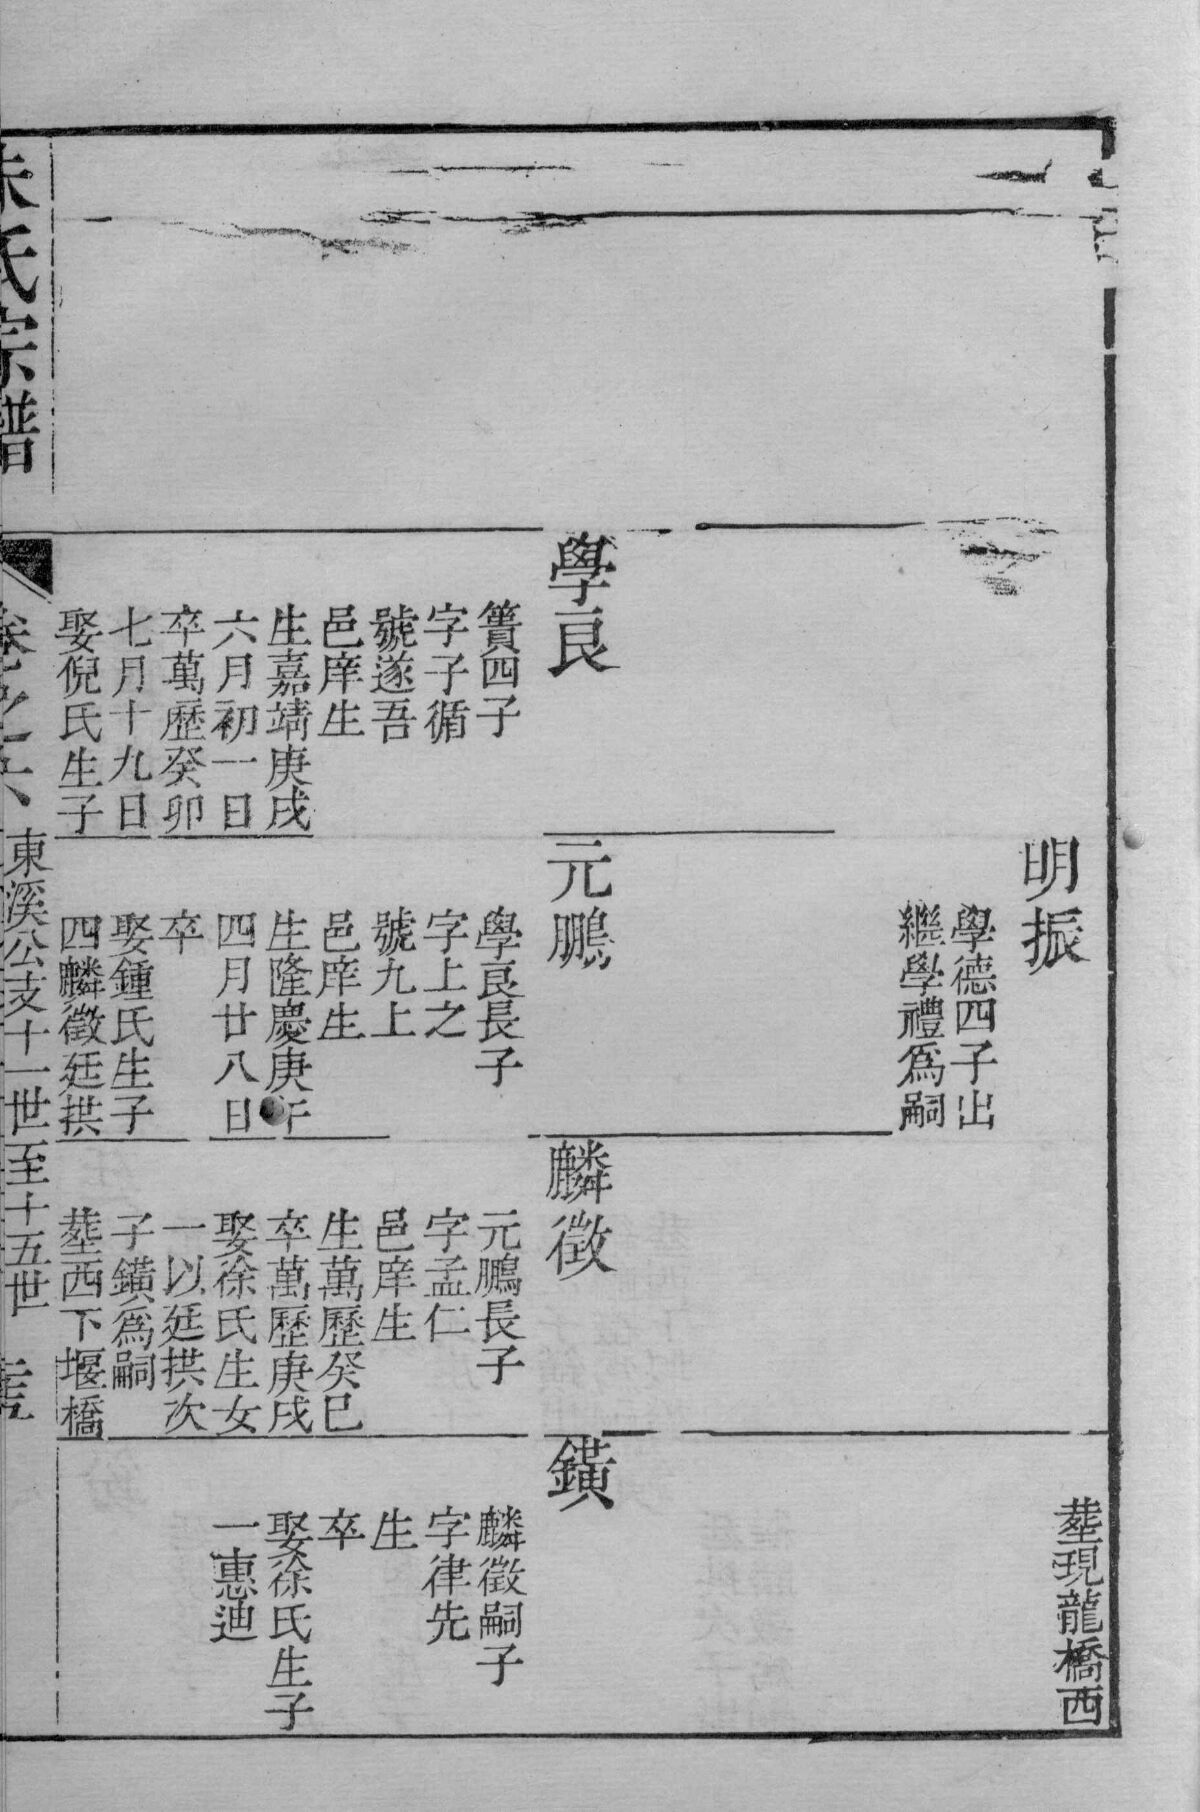 葬現龍橋西
明振
學德四子出
繼學禮爲嗣
學良
簣四子
字子循
號遂吾
邑庠生
生嘉靖庚戌
六月初一日
卒萬歷癸卯
七月十九日
娶倪氏生子
元鵬
學良長子
字上之
號九上
邑庠生
生隆慶庚午
四月廿八日
卒
娶鍾氏生子
四麟徵廷拱
麟徵
元鵬長子
字孟仁
邑庠生
生萬歷癸巳
卒萬歷庚戌
娶徐氏生女
一以廷拱次
子鐄爲嗣
塟西下堰橋
鐄
麟徵嗣子
字律先
生
卒
娶徐氏生子
一惠迪
朱氏宗譜
卷之六
東溪公支十一世至十五世